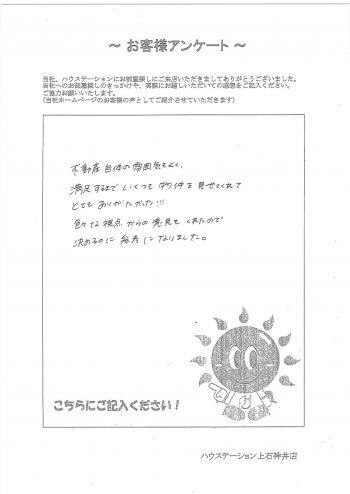 ～ お客様アンケート ～
当社、ハウステーションにお部屋探しにご来店いただきましてありがとうございました。
当社へのお部屋探しのきっかけや、実際にお越しいただいての感想をご記入ください。
ご協力お願いいたします。
(当社ホームページのお客様の声としてご紹介させていただきます)
不動産自体の雰囲気もよく、
満足するまでいくつも物件を見せてくれて
とてもありがたかった!!!
色々な視点からの意見もくれたので
決めるのに参考になりました。
こちらにご記入ください！
ハウステーション上石神井店